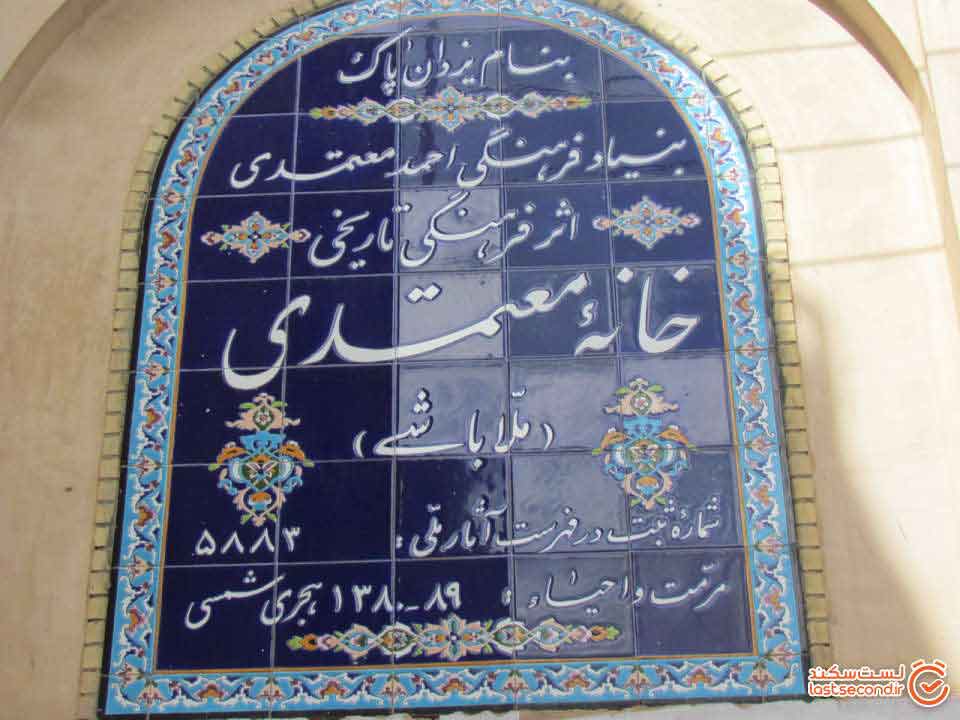 بنام یزدان پاک
بنیاد فرهنگی احمد معتمدی
اثر فرهنگی تاریخی
خانهٔ معتمدی
(ملّا باشی)
شمارهٔ ثبت در فهرست آثار ملّی : ۵۸۸۳
مرمّت و احیاء : ۸۹-۱۳۸۰ هجری شمسی
لست‌سکند
lastsecond.ir